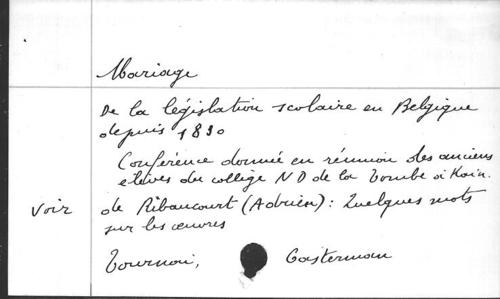 Mariage
De la législation scolaire en Belgique
depuis 1830
Conférence donnée en réunion des anciens
élèves du collège N D de la Tombe à Kain.
Voir de Ribaucourt (Adrien): Quelques mots
sur les œuvres
Tournai, Casterman